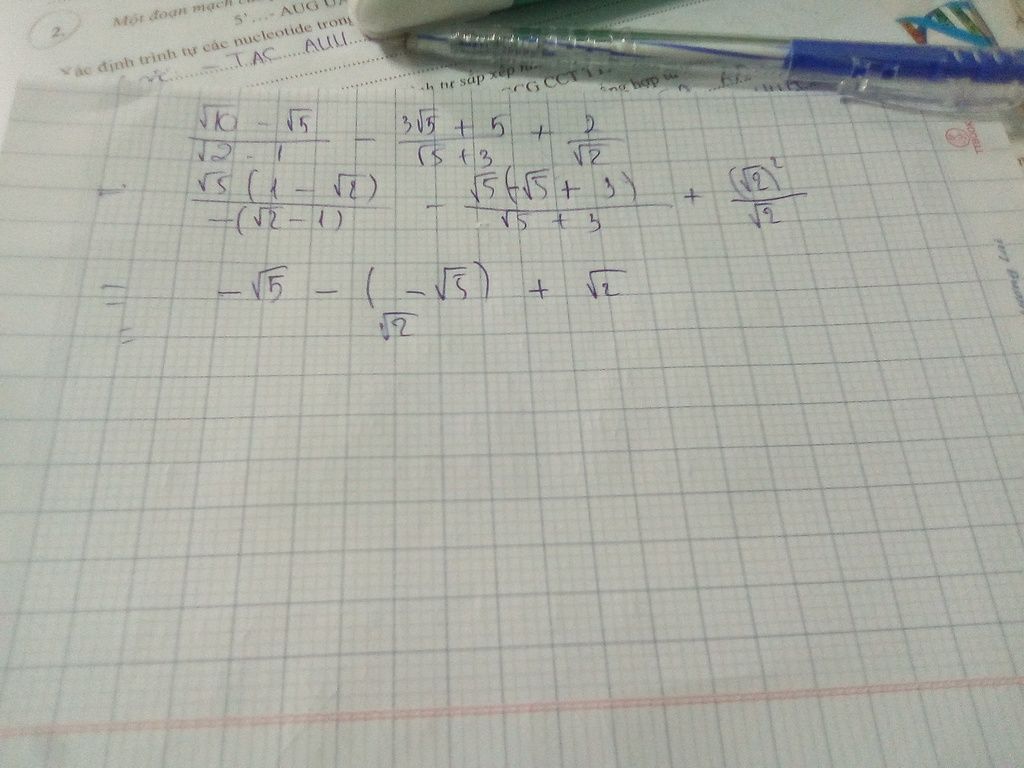 2. Một đoạn mạch
5'.... AUG
Xác định trình tự các nucleotide trong
TAC AUU
sắp xếp
\frac{\sqrt{10} - \sqrt{5}}{\sqrt{2} - 1} - \frac{3\sqrt{5} + 5}{\sqrt{5} + 3} + \frac{2}{\sqrt{2}}
- \frac{\sqrt{5} (1 - \sqrt{2})}{-(\sqrt{2} - 1)} - \frac{\sqrt{5} (-\sqrt{5} + 3)}{\sqrt{5} + 3} + \frac{(\sqrt{2})^2}{\sqrt{2}}
= -\sqrt{5} - (-\sqrt{5}) + \sqrt{2}
= \sqrt{2}